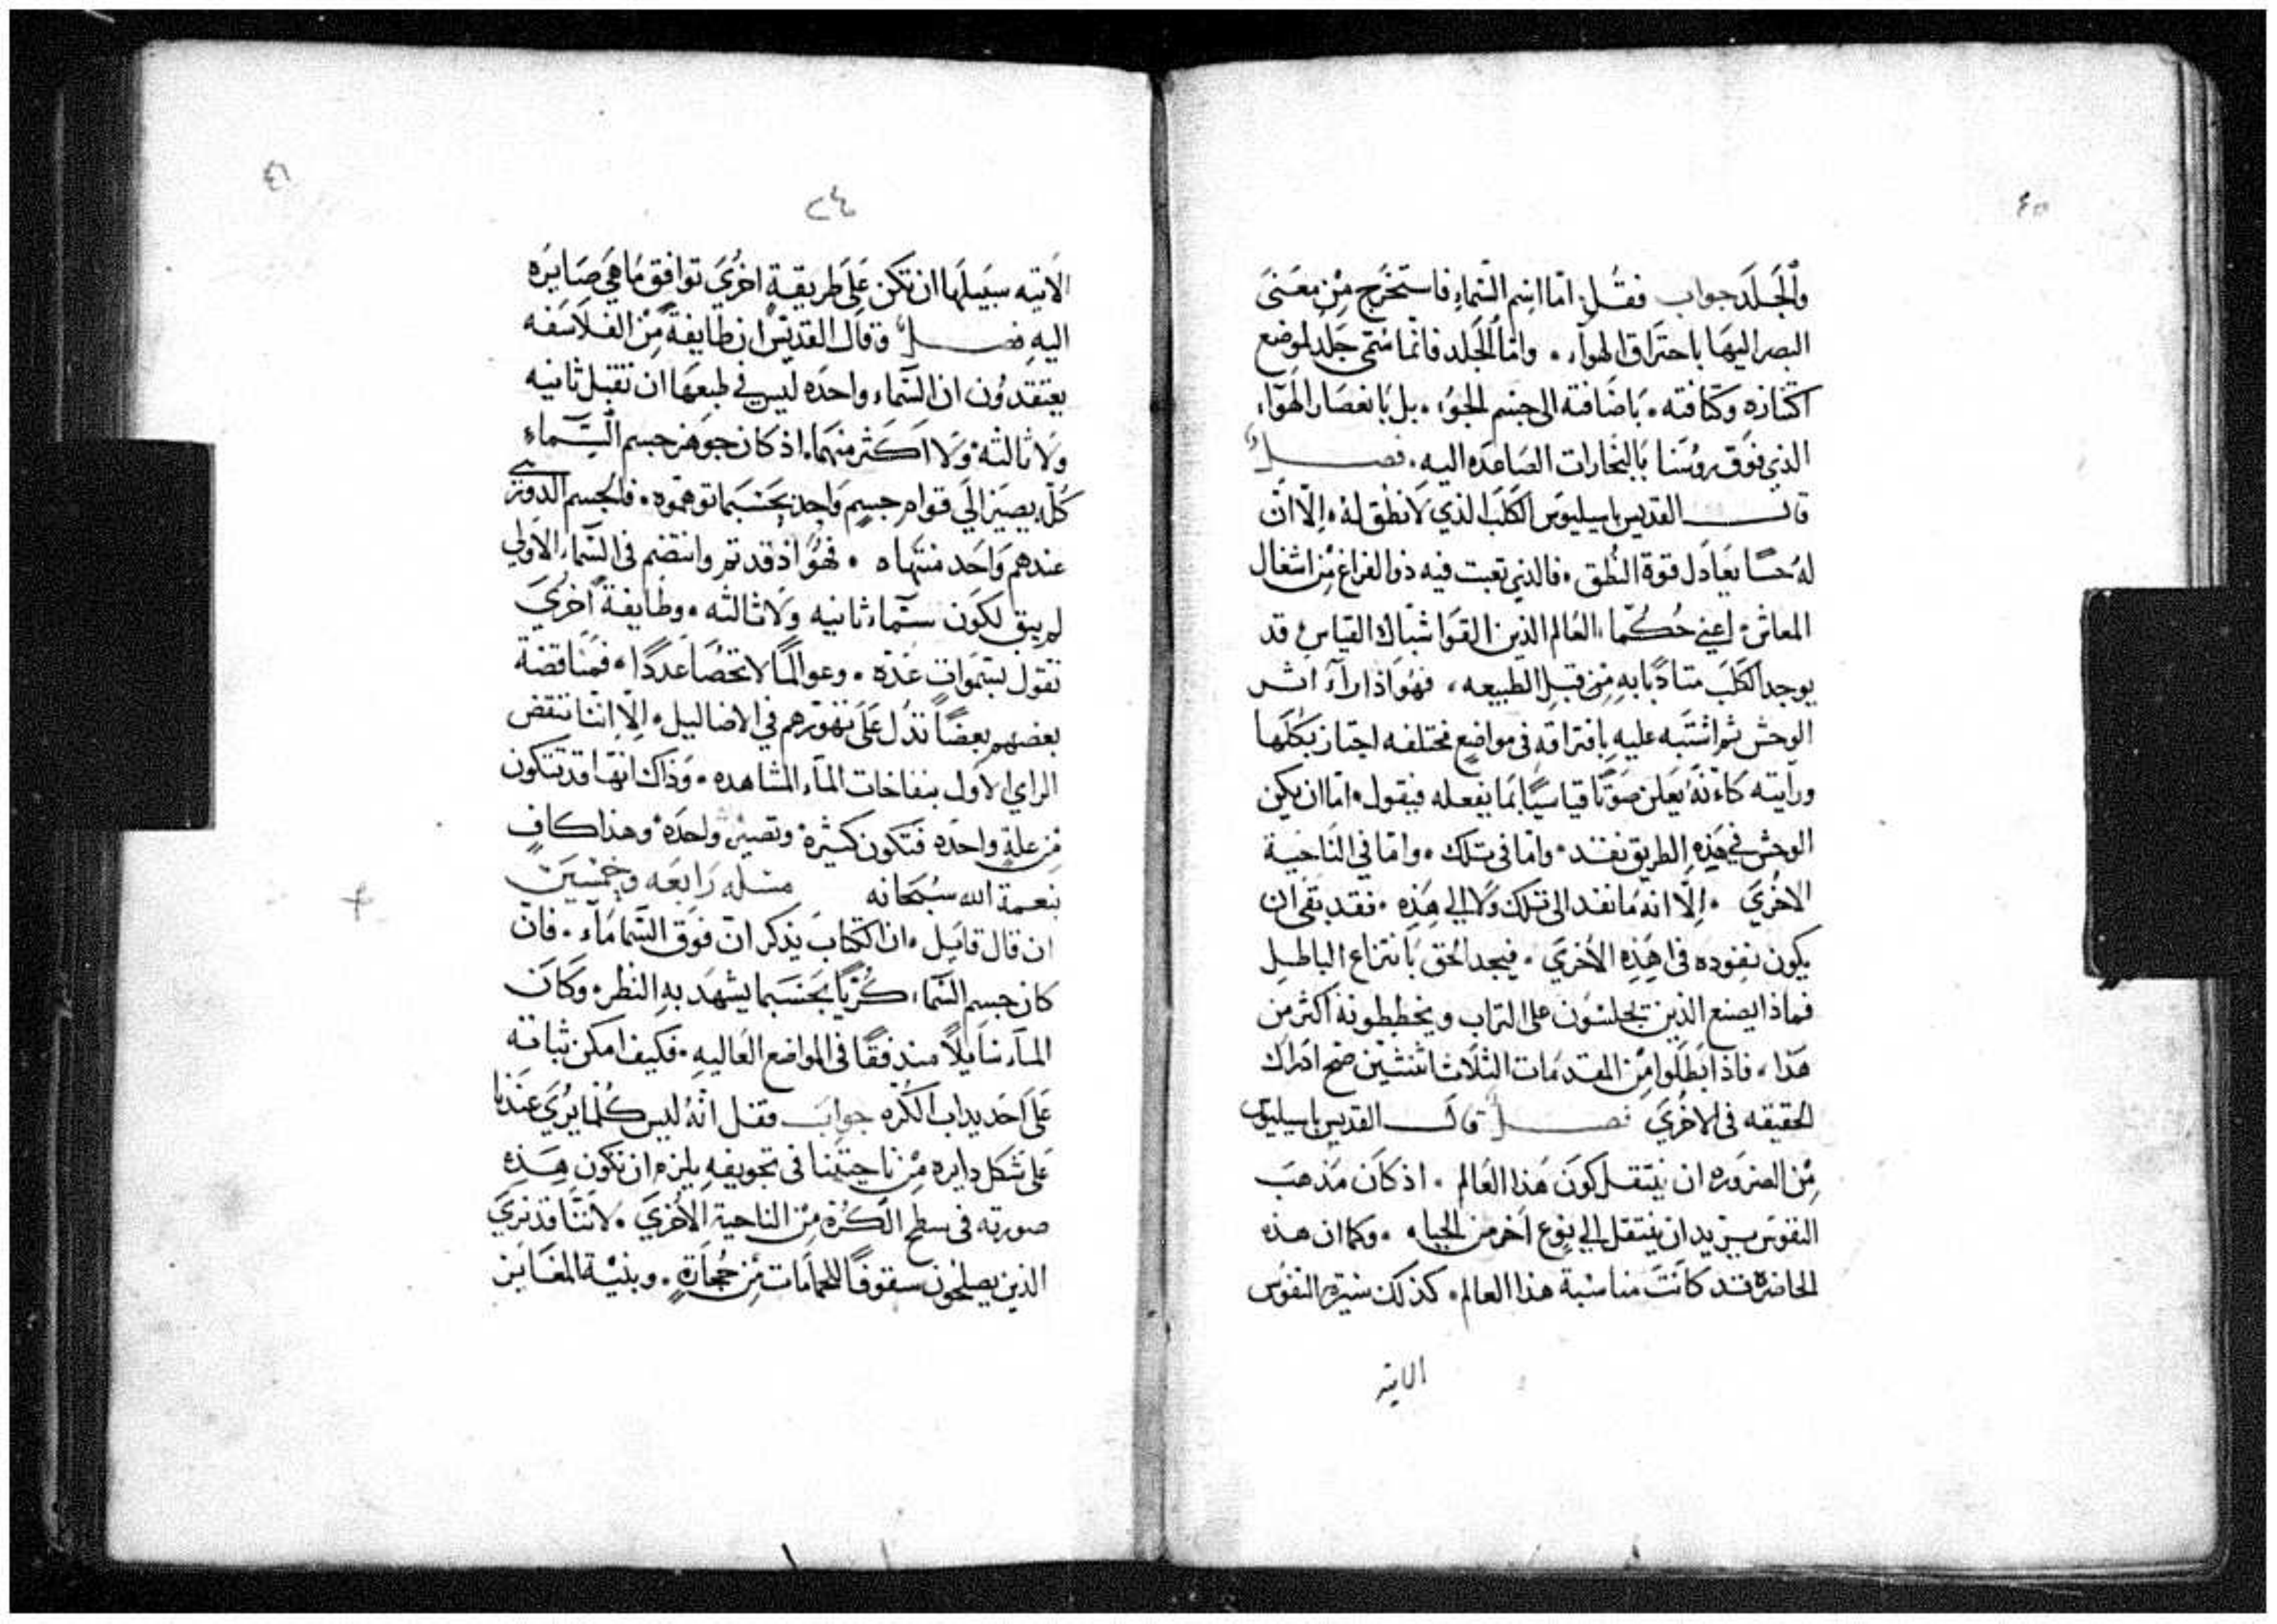 ٤٥
والجلد جواب فقل اما اسم السماء فاستخرج من معنى
البصر اليها باحتراق الهواء . واما الجلد فانما سمي جلد لموضع
اكتنازه وكثافته . باضافته الى جسم الجو . بل بانعصار الهواء
الذي فوق روسنا بالبخارات الصاعده اليه . فصل
قال القديس باسيليوس الكلب الذي لا نطق له . الا ان
له حسًا يعادل قوة النطق . فالذي تعبت فيه ذوا الفراغ من اشغال
المعاش . اعني حكما العالم الذين القوا شباك القياس قد
يوجد الكلب متادبا به من قبل الطبيعه . فهو اذا راء اثر
الوحش ثم اشتبه عليه بافتراقه في مواضع مختلفه اجتاز بكلها
ورايته كانه يعلن صوتا قياسيا بما يفعله فيقول . اما ان يكن
الوحش في هذه الطريق نفد . واما في تلك . واما في الناحية
الاخري . الا انه ما نفد الى تلك ولا الي هذه . فقد بقى ان
يكون نفوده في هذه الاخري . فيجد الحق بانتزاع الباطل
فماذا يصنع الذين يجلسون على التراب ويخططونه اكثر من
هذا . فاذا ابطلوا من المقدمات الثلاث اثنتين صح ادراك
الحقيقه في الاخري فصل قال القديس باسيليوس
من الضروره ان ينتقل كون هذا العالم . اذ كان مذهب
النفوس يزيد ان ينتقل الي نوع اخر من الحياه . وكما ان هذه
الحاضرة قد كانت مناسبة هذا العالم . كذلك سيرة النفوس
الاتيه
٤٦
٢٤
الاتيه سبيلها ان تكن على طريقة اخري توافق ما هي صايره
اليه فصل وقال القديس ان طايفة من الفلاسفه
يعتقدون ان السماء واحده ليس في طبعها ان تقبل ثانيه
ولا ثالثه . ولا اكثر منهما . اذ كان جوهر جسم السماء
كله يصير الي قوام جسم واحد بحسبما توهموه . فالجسم الدوري
عندهم واحد منتهاه . فهو اذ قد تم وانتضم في السماء الاولي
لم يبق لكون سماء ثانيه ولا ثالثه . وطايفة اخري
تقول بسموات عده . وعوالما لا تحصا عددًا . فمناقضة
بعضهم بعضًا تدل على تهورهم في الاضاليل . الا اننا ننقض
الراي الاول بنفاخات الماء المشاهده . وذاك انها قد تتكون
من علة واحده فتكون كثيرة وتصير واحده . وهذا كافٍ
بنعمة الله سبحانه مسله رابعه وخمسين
ان قال قايل . ان الكتاب يذكر ان فوق السما ماء . فان
كان جسم السماء كريا بحسبما يشهد به النظر . وكان
الماء سايلًا مندفقًا في المواضع العاليه . فكيف امكن ثباته
على احديداب الكره جواب فقل انه ليس كلما يري عندنا
على شكل دايره من ناحيتنا في تجويفه يلزم ان تكون هذه
صورته في سطح الكرة من الناحية الاخري . لاننا قد نري
الذين يصلحون سقوفًا للحمامات من حجارة . وبنية المغاير